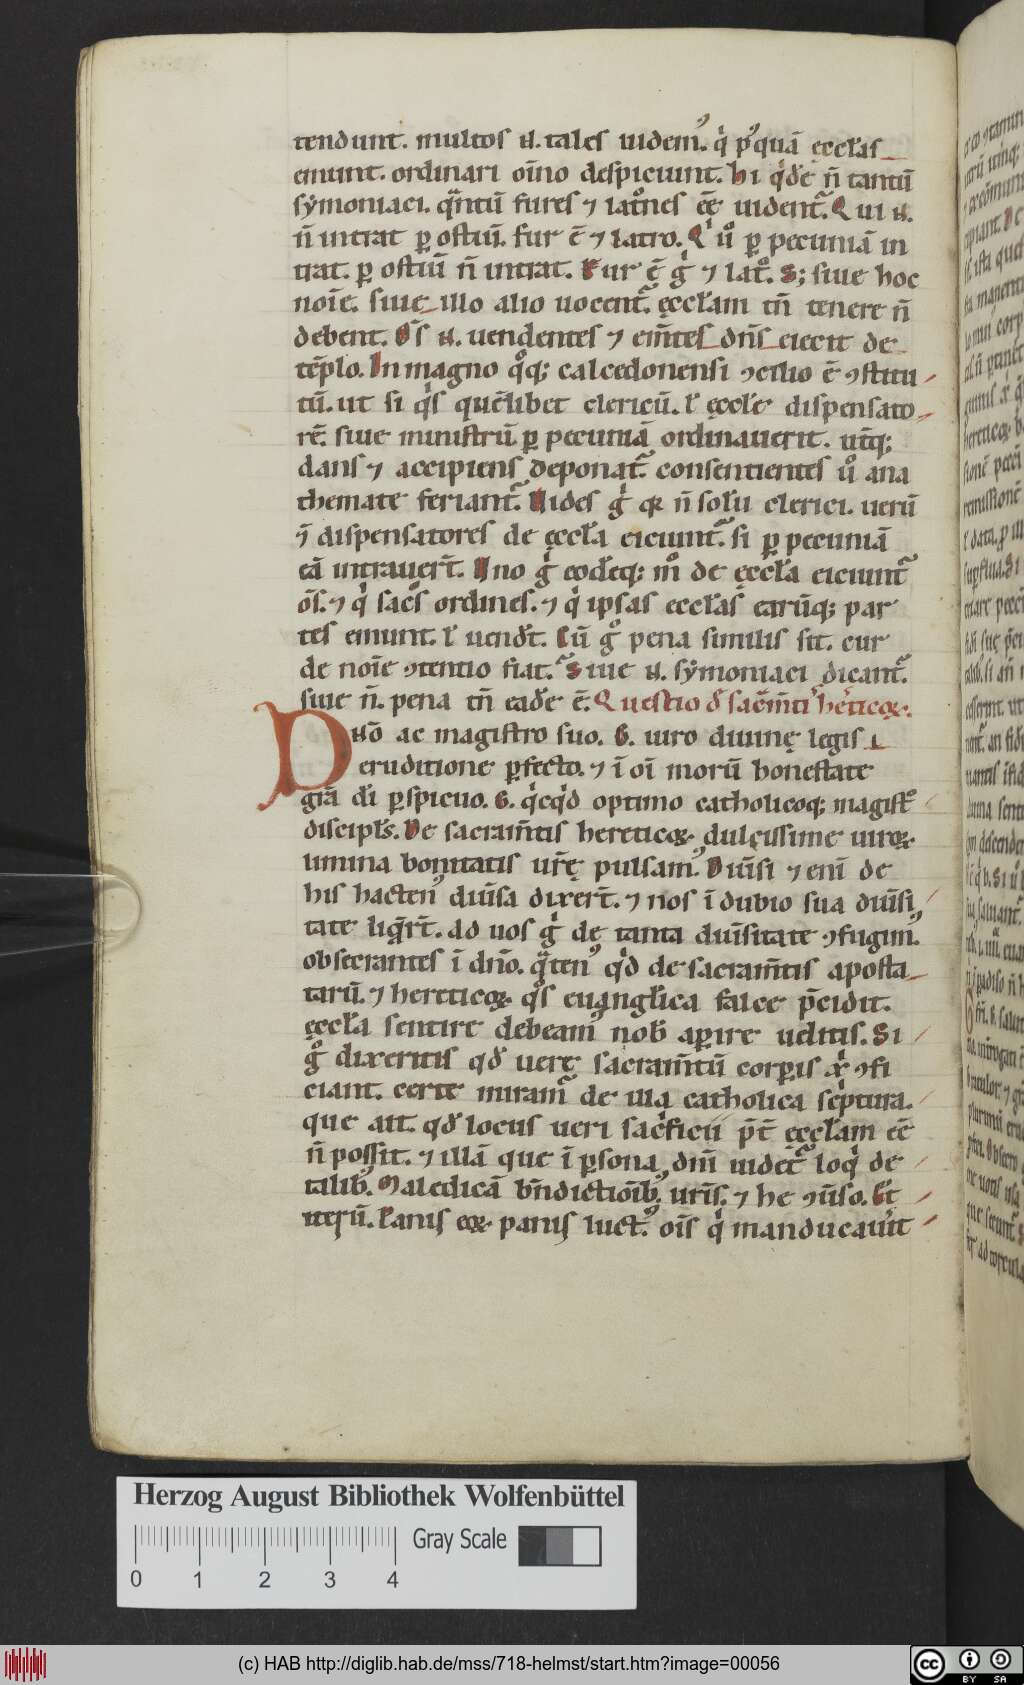 tendunt. multos .n. tales uidem᷒. q̇ p᷒quā eccl̄as
emunt. ordinari oīno despiciunt. Hi q̇dē n̄ tantū
sẏmoniaci. qͣntū fures ⁊ latͦnes eē uident᷑. Qui .n.
n̄ intrat ꝑ ostiū. fur ē ⁊ latro. Qͥ ůo ꝑ pecuniā in
trat. ꝑ ostiū n̄ intrat. Fur ē gͥ ⁊ latͦ. Sꝫ siue hoc
noīe. siue illo alio uocent᷑. ęccl̄am tn̄ tenere n̄
debent. Oīs .n. uendentes ⁊ em̄tes dn̄s eiecit de
tēplo. In magno qͦqꝫ calcedonensi ꝯcilio ē ꝯstitu
tū. ut si qͥs quēlibet clericū. l̄ ęccl̄e dispensato
rē. siue ministrū ꝑ pecuniā ordinauerit. utqꝫ
dans ⁊ accipiens deponat᷑. consentientes ůo ana
themate feriant᷑. Vides gͥ qꝛ n̄ solū clerici. uerū
⁊ dispensatores de ęccl̄a eiciunt᷑. si ꝑ pecuniā
eā intrauer̄t. Vno gͥ eodēqꝫ mͦ de ęccl̄a eiciunt᷑
oīs. ⁊ qͥ sac̄s ordines. ⁊ qͥ ipsas eccl̄as earūqꝫ par
tes emunt. l̄ uend̄t. Cū gͦ pena similis sit. cur
de noīe ꝯtentio fiat. Siue .n. sẏmoniaci dicant᷑.
siue n̄. pena tn̄ eadē ē. Questio d̄ sacm̄ti᷒ hēticoꝝ.
Dn̄o ac magistro suo. G. uiro diuinę legis
eruditione ꝑfecto. ⁊ ī oī morū honestate
gīa dī ꝑspicuo. G. qͥcqͥd optimo catholicoqꝫ magistͦ
discipl̄s. De sacram̄tis hereticoꝝ dulcissime uiroꝝ
umina bonitatis ur̄ę pulsam᷒. Diuīsi ⁊ enī de
his hacten᷒ diuīsa dixer̄t. ⁊ nos ī dubio sua diuīsi
tate liqͣr̄t. ad uos gͥ de tanta diuīsitate ꝯfugim᷒.
obsecrantes ī dn̄o. qͣten᷒ qͥd de sacram̄tis aposta
tarū. ⁊ hereticoꝝ qͦs euangl̄ica falce p̄cidit.
ęccl̄a sentire debeam᷒ nob̄ aꝑire uelitis. Si
gͦ dixeritis qd̄ uerę sacram̄tū corꝑis xͥ ꝯfi
ciant. certe miram᷑ de illa catholica scͥptura.
que ait. qd̄ locus ueri sacͥficii p̄t̄ ęccl̄am eē
n̄ possit. ⁊ illā que ī ꝑsona dn̄i uidet᷑ loqͥ de
talib᷒. Maledicā bn̄dictiōib᷒ uris. ⁊ he ꝯūso. Et
iterū. Panis eoꝝ panis luct᷒. oīs qͥ manducauīt
Herzog August Bibliothek Wolfenbüttel
Gray Scale
0 1 2 3 4
(c) HAB http://diglib.hab.de/mss/718-helmst/start.htm?image=00056
cc BY SA